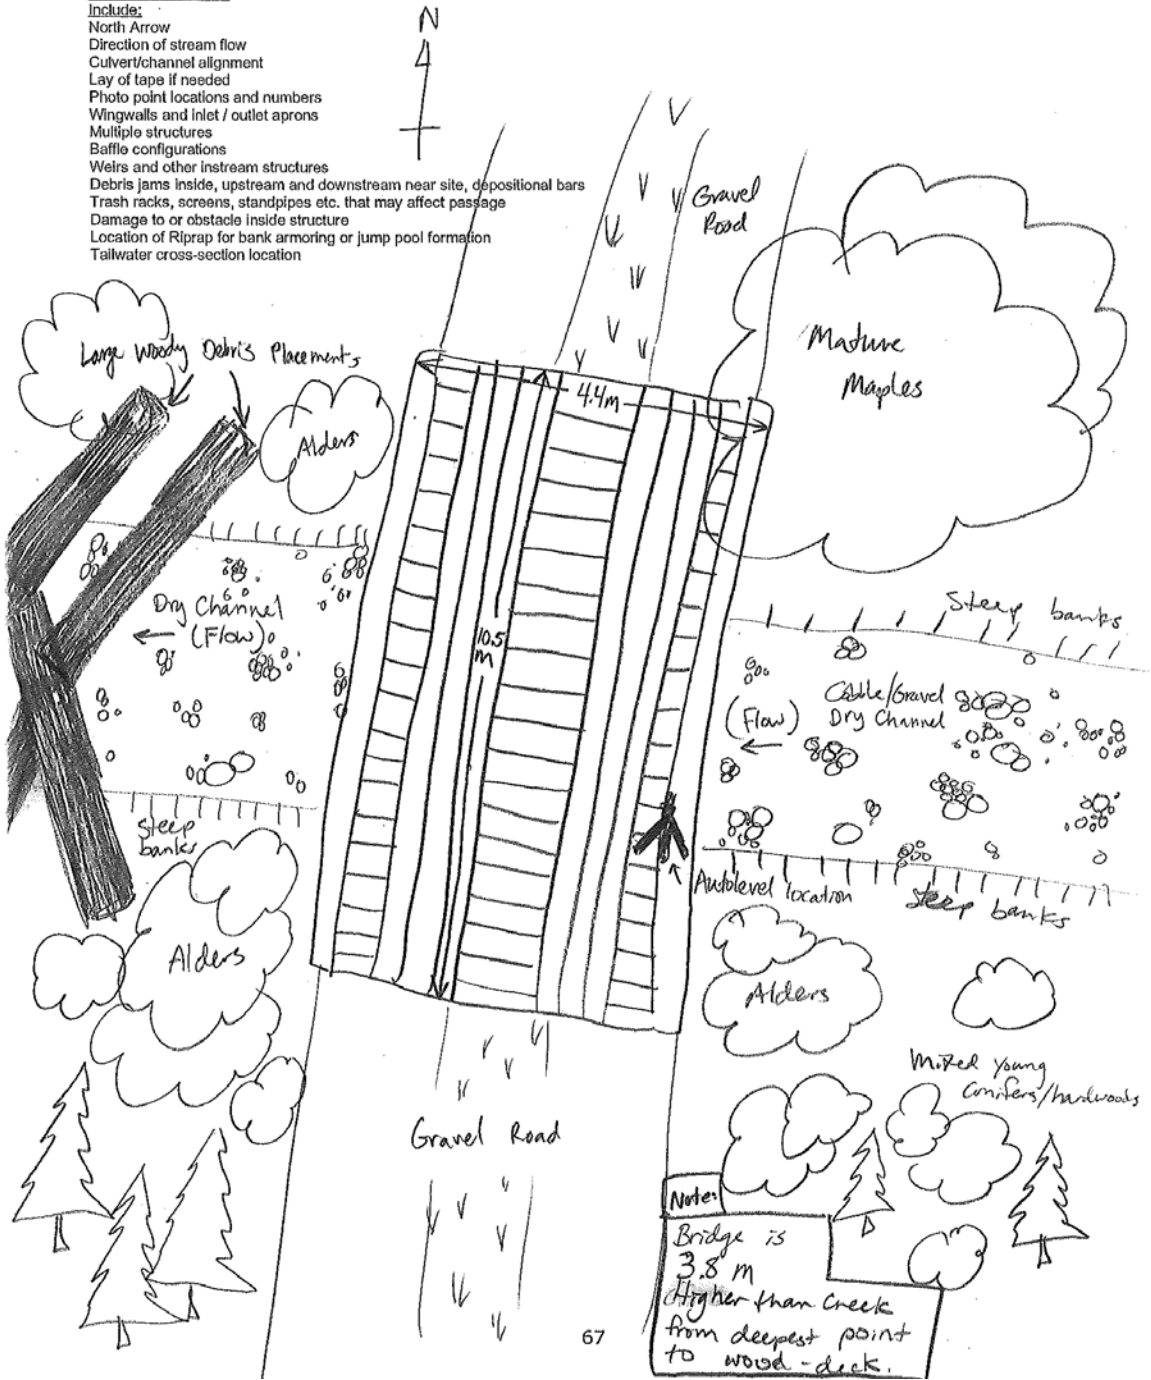 Include:
North Arrow
Direction of stream flow
Culvert/channel alignment
Lay of tape if needed
Photo point locations and numbers
Wingwalls and inlet / outlet aprons
Multiple structures
Baffle configurations
Weirs and other instream structures
Debris jams inside, upstream and downstream near site, depositional bars
Trash racks, screens, standpipes etc. that may affect passage
Damage to or obstacle inside structure
Location of Riprap for bank armoring or jump pool formation
Tailwater cross-section location
N
Gravel
Road
Large Woody Debris Placements
Alders
4.4m
Mature
Maples
Dry Channel
(Flow)
10.5
m
Steep banks
Cobble/Gravel
Dry Channel
(Flow)
Steep
banks
Autolevel location
Steep banks
Alders
Alders
Mixed young
Conifers/hardwoods
Gravel Road
Note:
Bridge is
3.8 m
Higher than Creek
from deepest point
to wood-deck.
67